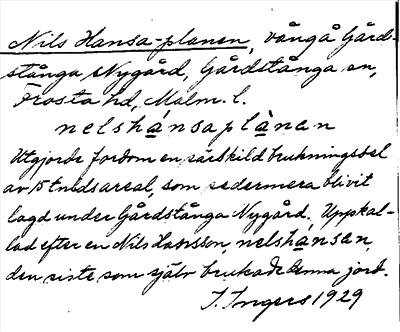 Nils Hansa-planen, vångå Gård-
stånga Nygård, Gårdstånga sn,
Frosta hd, Malm. l.
nelshánsaplànan
Utgjorde fordom en särskild brukningsdel
av 15 tnlds areal, som sedermera blivit
lagd under Gårdstånga Nygård. Uppkal-
lad efter en Nils Hansson, nelshánsan,
den siste som själv brukade denna jord.
I. Ingers 1929